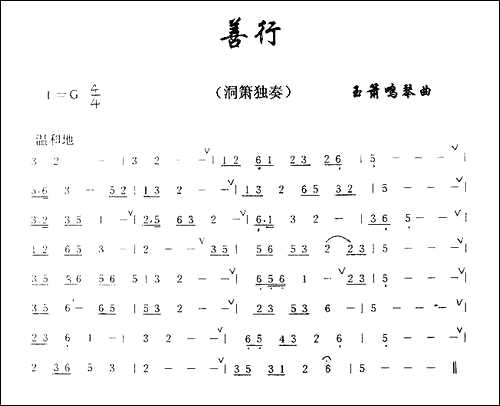 善行
1=G 4/4
(洞箫独奏)
玉箫鸣琴曲
温和地
3 2 - - | 3 2 - - | 12 61 23 26 | 5 - - - |
3·6 3 - 52 | 13 2 - - | 13 2 65 32 | 5 - - - |
3·2 35 1 - | 2·5 63 2 - | 6·1 3 - - | 36 5 - - |
12 65 3 - | 2 - - 35 | 56 53 2 23 | 5 - - - |
35 56 56 5 | 3 2 - - | 656 1 - 23 | 5 - - - |
35 6 - 65 | 53 2 - - | 23 53 6 - | 5 - - - |
23 6 1 - | 3 2 - - | 65 43 2 6 | 5 - - - |
2 36 5 3 | 2 - - - | 35 31 2 6 | 5 - - - ‖